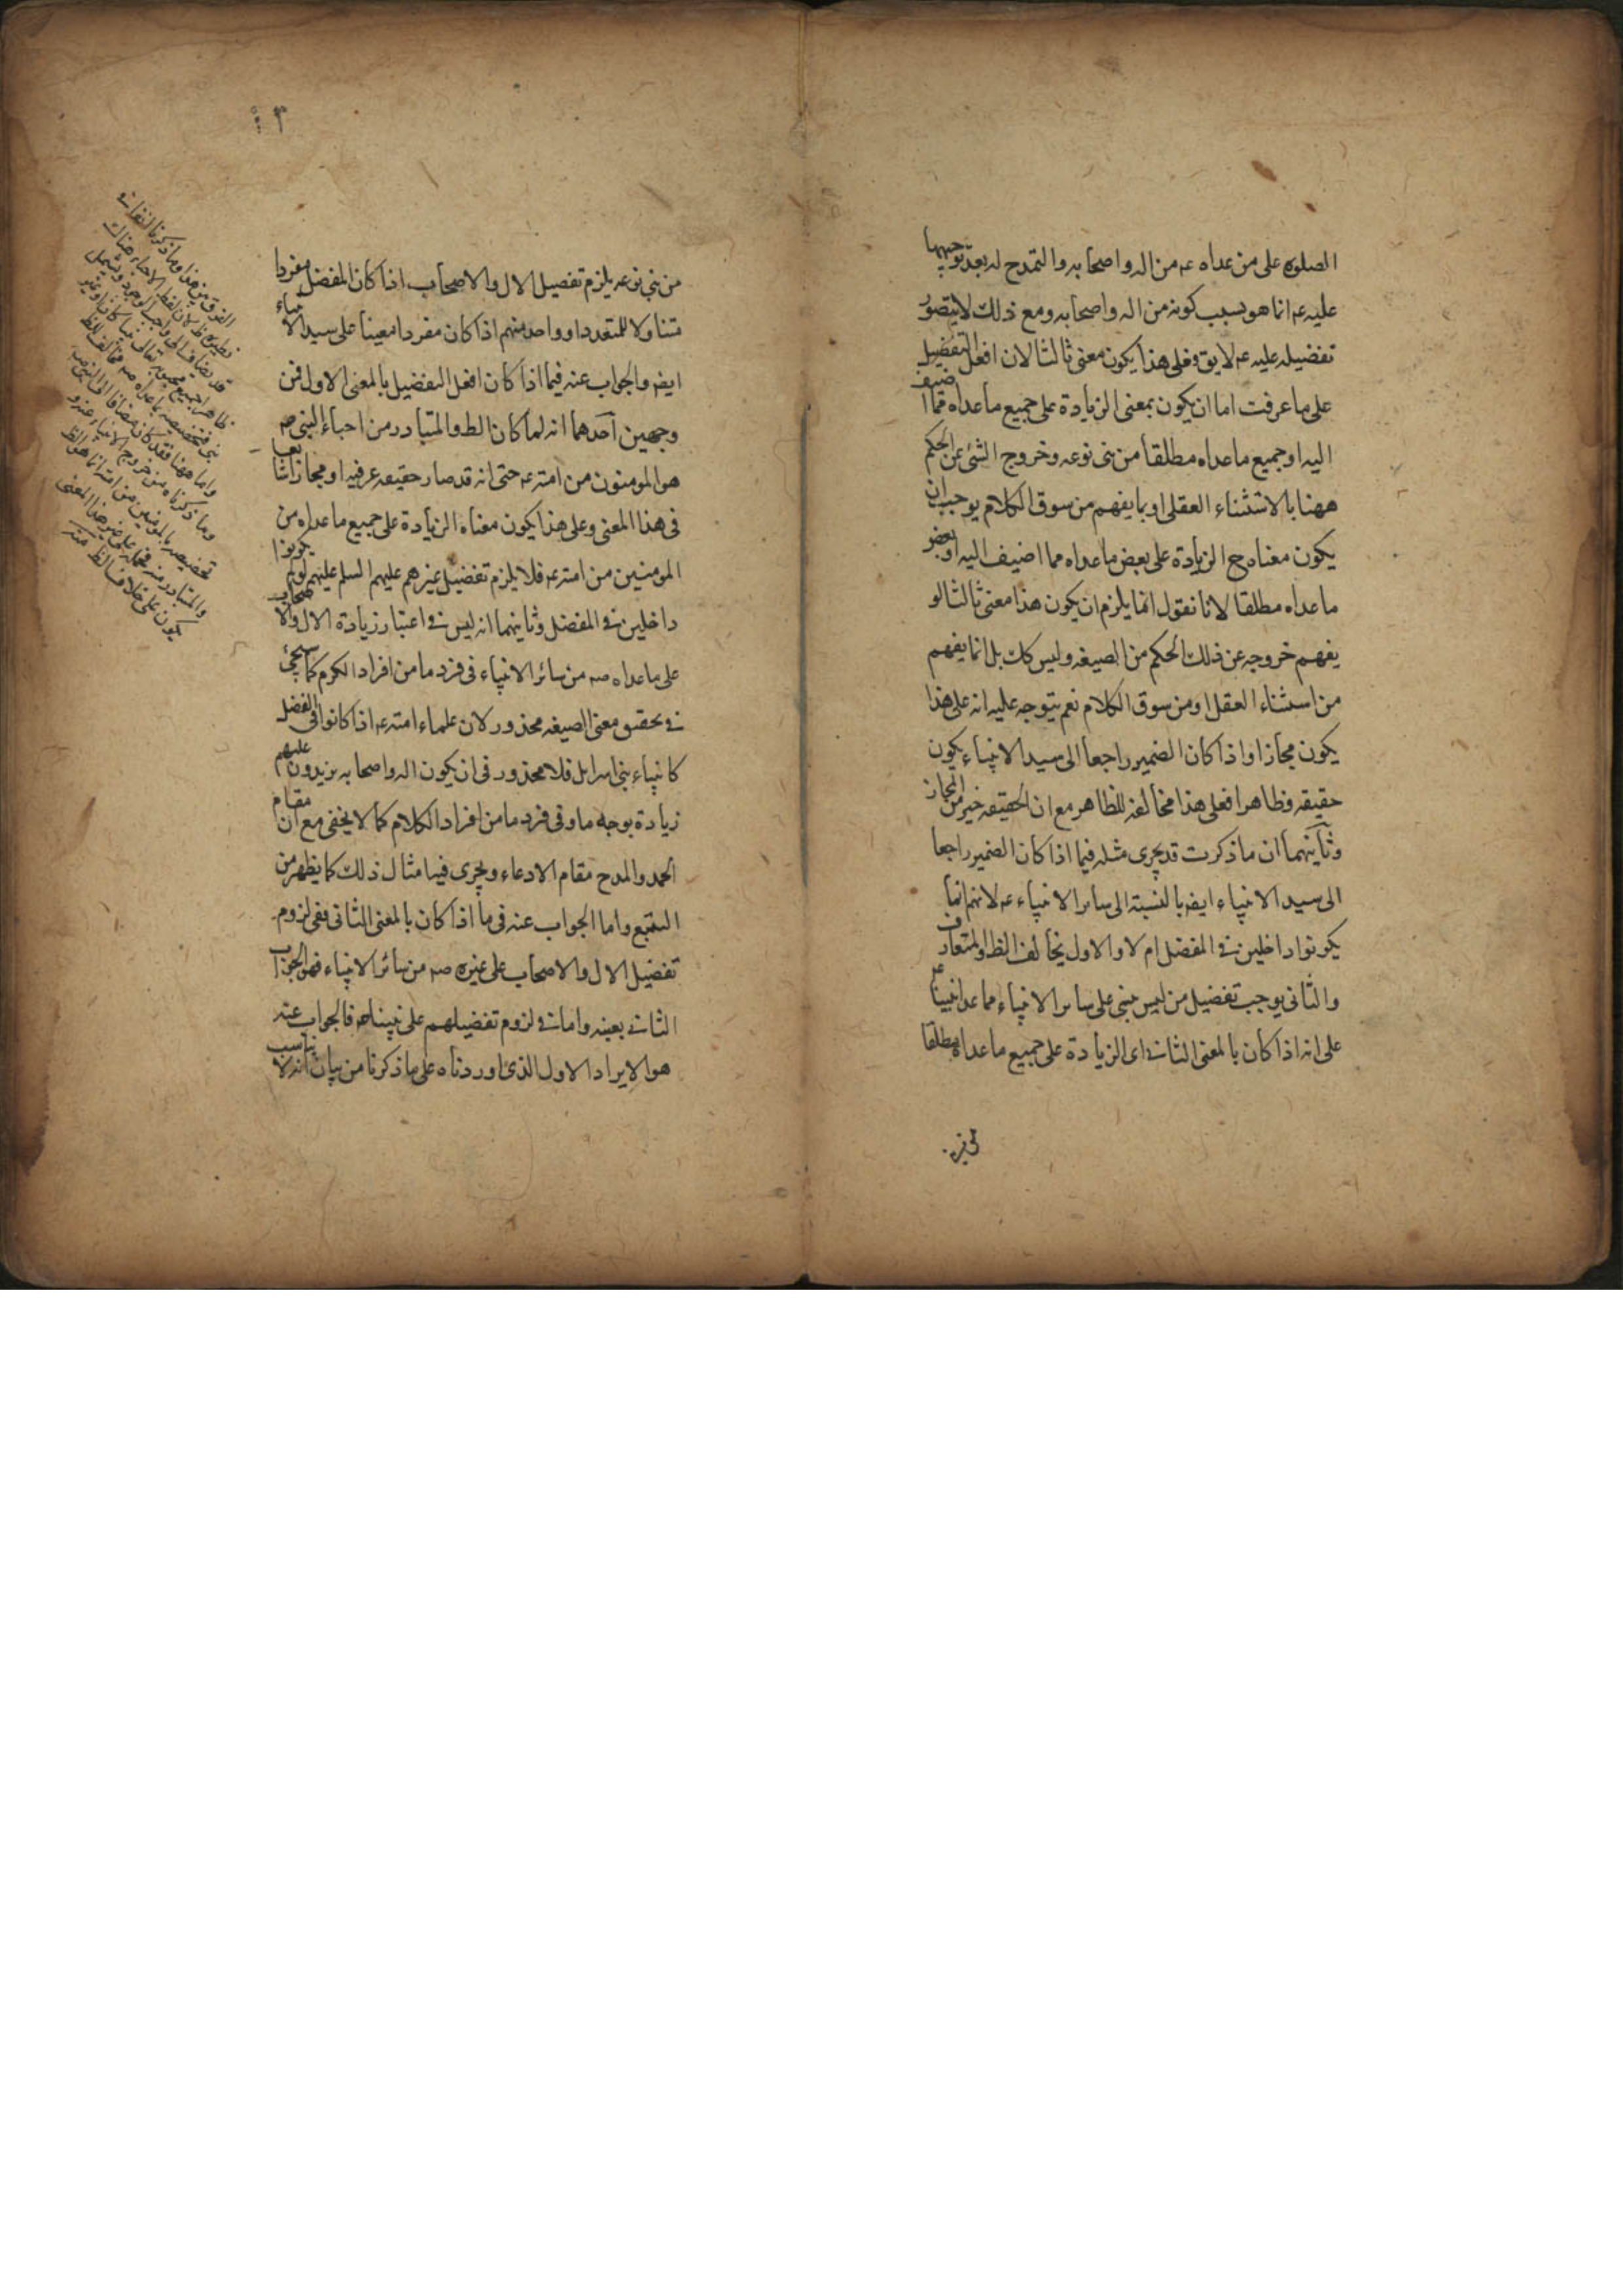 الصلوة على من عداه عم من اله واصحابه والتمدح له بعد توجهها
عليه عم انما هو بسبب كونه من اله واصحابه ومع ذلك لا يتصور
تفضيله عليه عم لا يق فعلى هذا يكون معنى ثالثا لان افعل التفضيل
على ما عرفت اما ان يكون بمعنى الزيادة على جميع ما عداه مما اضيف
اليه او جميع ما عداه مطلقا من بنى نوعه وخروج الشئ عن الحكم
ههنا بالاستثناء العقلى او بما يفهم من سوق الكلام يوجب ان
يكون معناه ح الزيادة على بعض ما عداه مما اضيف اليه او بعض
ما عداه مطلقا لانا نقول انما يلزم ان يكون هذا معنى ثالثا لو
يفهم خروجه عن ذلك الحكم من الصيغه وليس كك بل انما يفهم
من استثناء العقل او من سوق الكلام نعم يتوجه عليه انه على هذا
يكون مجازا واذا كان الضمير راجعا الى سيد الانبياء يكون
حقيقه وظاهرا فعلى هذا مخالفه للظاهر مع ان الحقيقه خير من المجاز
وثانيهما ان ما ذكرت قد يجرى مثله فيما اذا كان الضمير راجعا
الى سيد الانبياء ايضه بالنسبة الى سائر الانبياء عم لانهم اما
يكونوا داخلين فى المفضل ام لا والاول يخالف الظ والمتعارف
والثانى يوجب تفضيل من ليس بنبى على سائر الانبياء مما عدا نبينا عم
على انه اذا كان بالمعنى الثانى اى الزيادة على جميع ما عداه مطلقا
من بنى نوعه يلزم تفضيل الال والاصحاب اذا كان المفضل مفردا
متناولا للمتعدد او واحد منهم اذا كان مفردا معينا على سيد الانبياء
ايضه والجواب عنه فيما اذا كان افعل التفضيل بالمعنى الاول فمن
وجهين احدهما انه لما كان الظ والمتبادر من احباء النبى صم
هو المومنون من امته عم حتى انه قد صار حقيقه عرفيه او مجازا شايعا
فى هذا المعنى وعلى هذا يكون معناه الزيادة على جميع ما عداه من
المومنين من امته عم فلا يلزم تفضيل غيرهم عليهم السلم عليهم لو لم يكونوا
داخلين فى المفضل وثانيهما انه ليس فى اعتبار زيادة الال والاصحاب
على ما عداه صم من سائر الانبياء فى فرد ما من افراد الكرم كما سيجئ
فى تحقيق معنى الصيغه محذور لان علماء امته عم اذا كانوا فى الفضل
كانبياء بنى اسرايل فلا محذور فى ان يكون اله واصحابه يزيدون عليهم
زيادة بوجه ما وفى فرد ما من افراد الكلام كما لا يخفى مع ان مقام
الحمد والمدح مقام الادعاء ويجرى فيها مثال ذلك كما يظهر من
التتبع واما الجواب عنه فى ما اذا كان بالمعنى الثانى ففى لزوم
تفضيل الال والاصحاب على غيره صم من سائر الانبياء فهو الجواب
الثانى بعينه واما فى لزوم تفضيلهم على نبينا صم فالجواب عنه
هو الايراد الاول الذى اوردناه على ما ذكرنا من بيان انه لا يناسب
الفرق بين هذا وما ذكرنا
لان لفظ الاحباء هناك
واما ههنا فقد كان مضافا الى
وما ذكرناه من خروج الانبياء
تخصيصه بالمومنين من امته انما هو الظ
والمتبادر منه فحمله على غير هذا المعنى
يكون على خلاف الظ منه